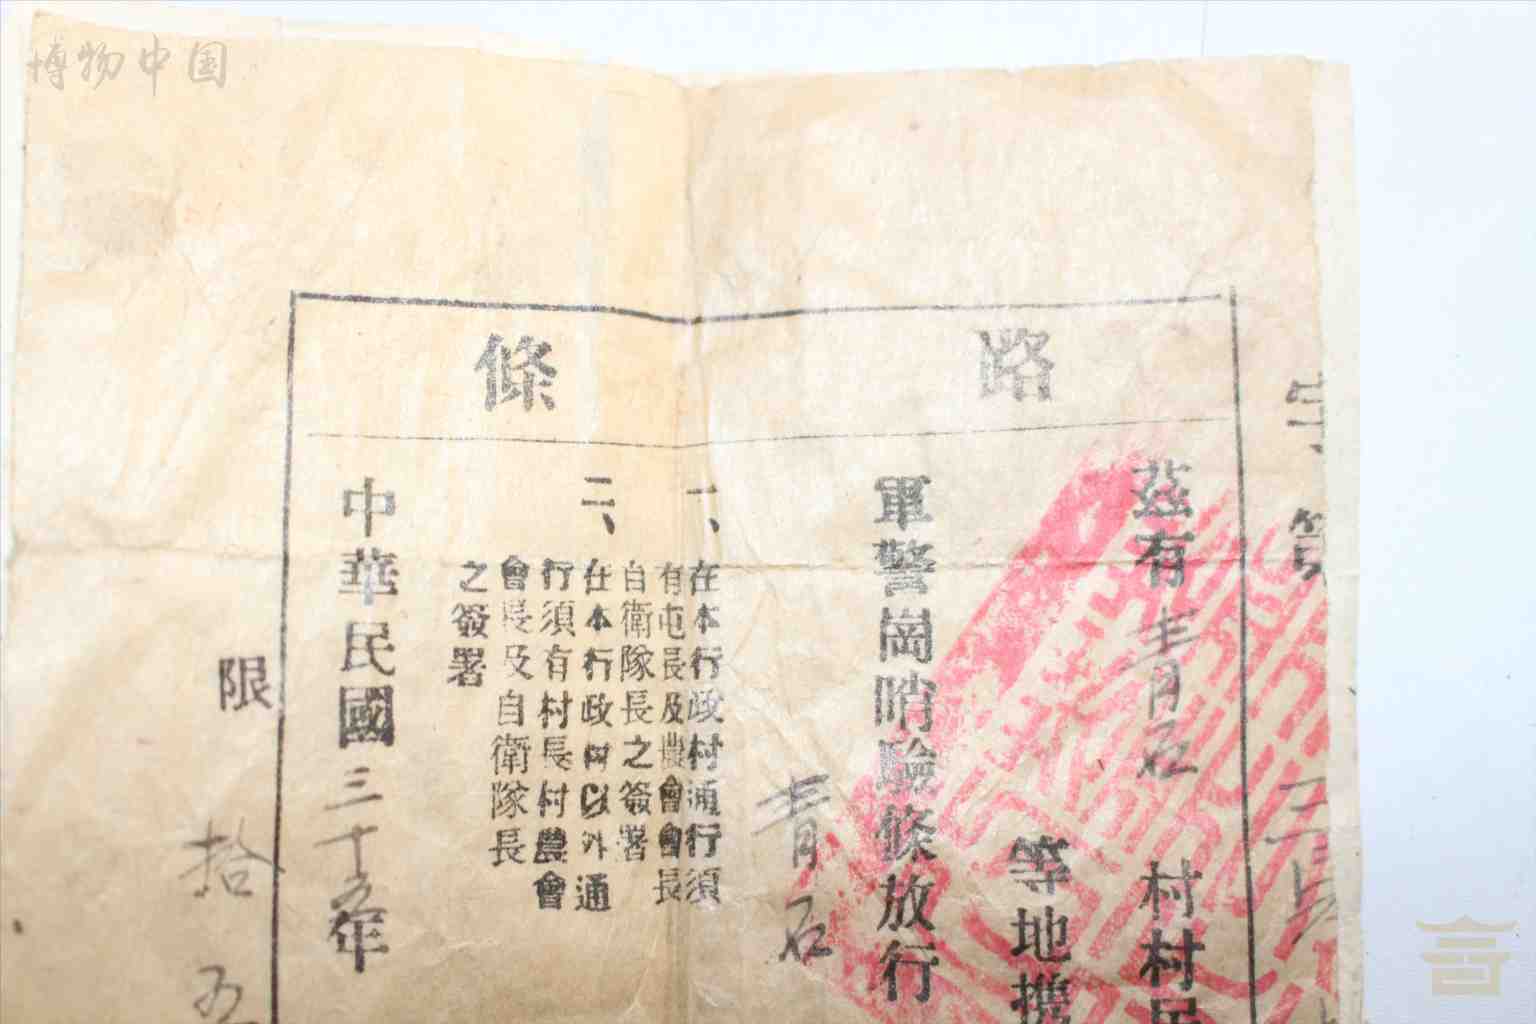 博物中国
路條
字第
茲有青石 村村民
等地携
軍警崗哨驗條放行
青石
一、在本行政村通行須
有屯長及農會會長
自衛隊長之簽署
二、在本行政村以外通
行須有村長村農會
會長及自衛隊長
之簽署
中華民國三十五年
限
拾五